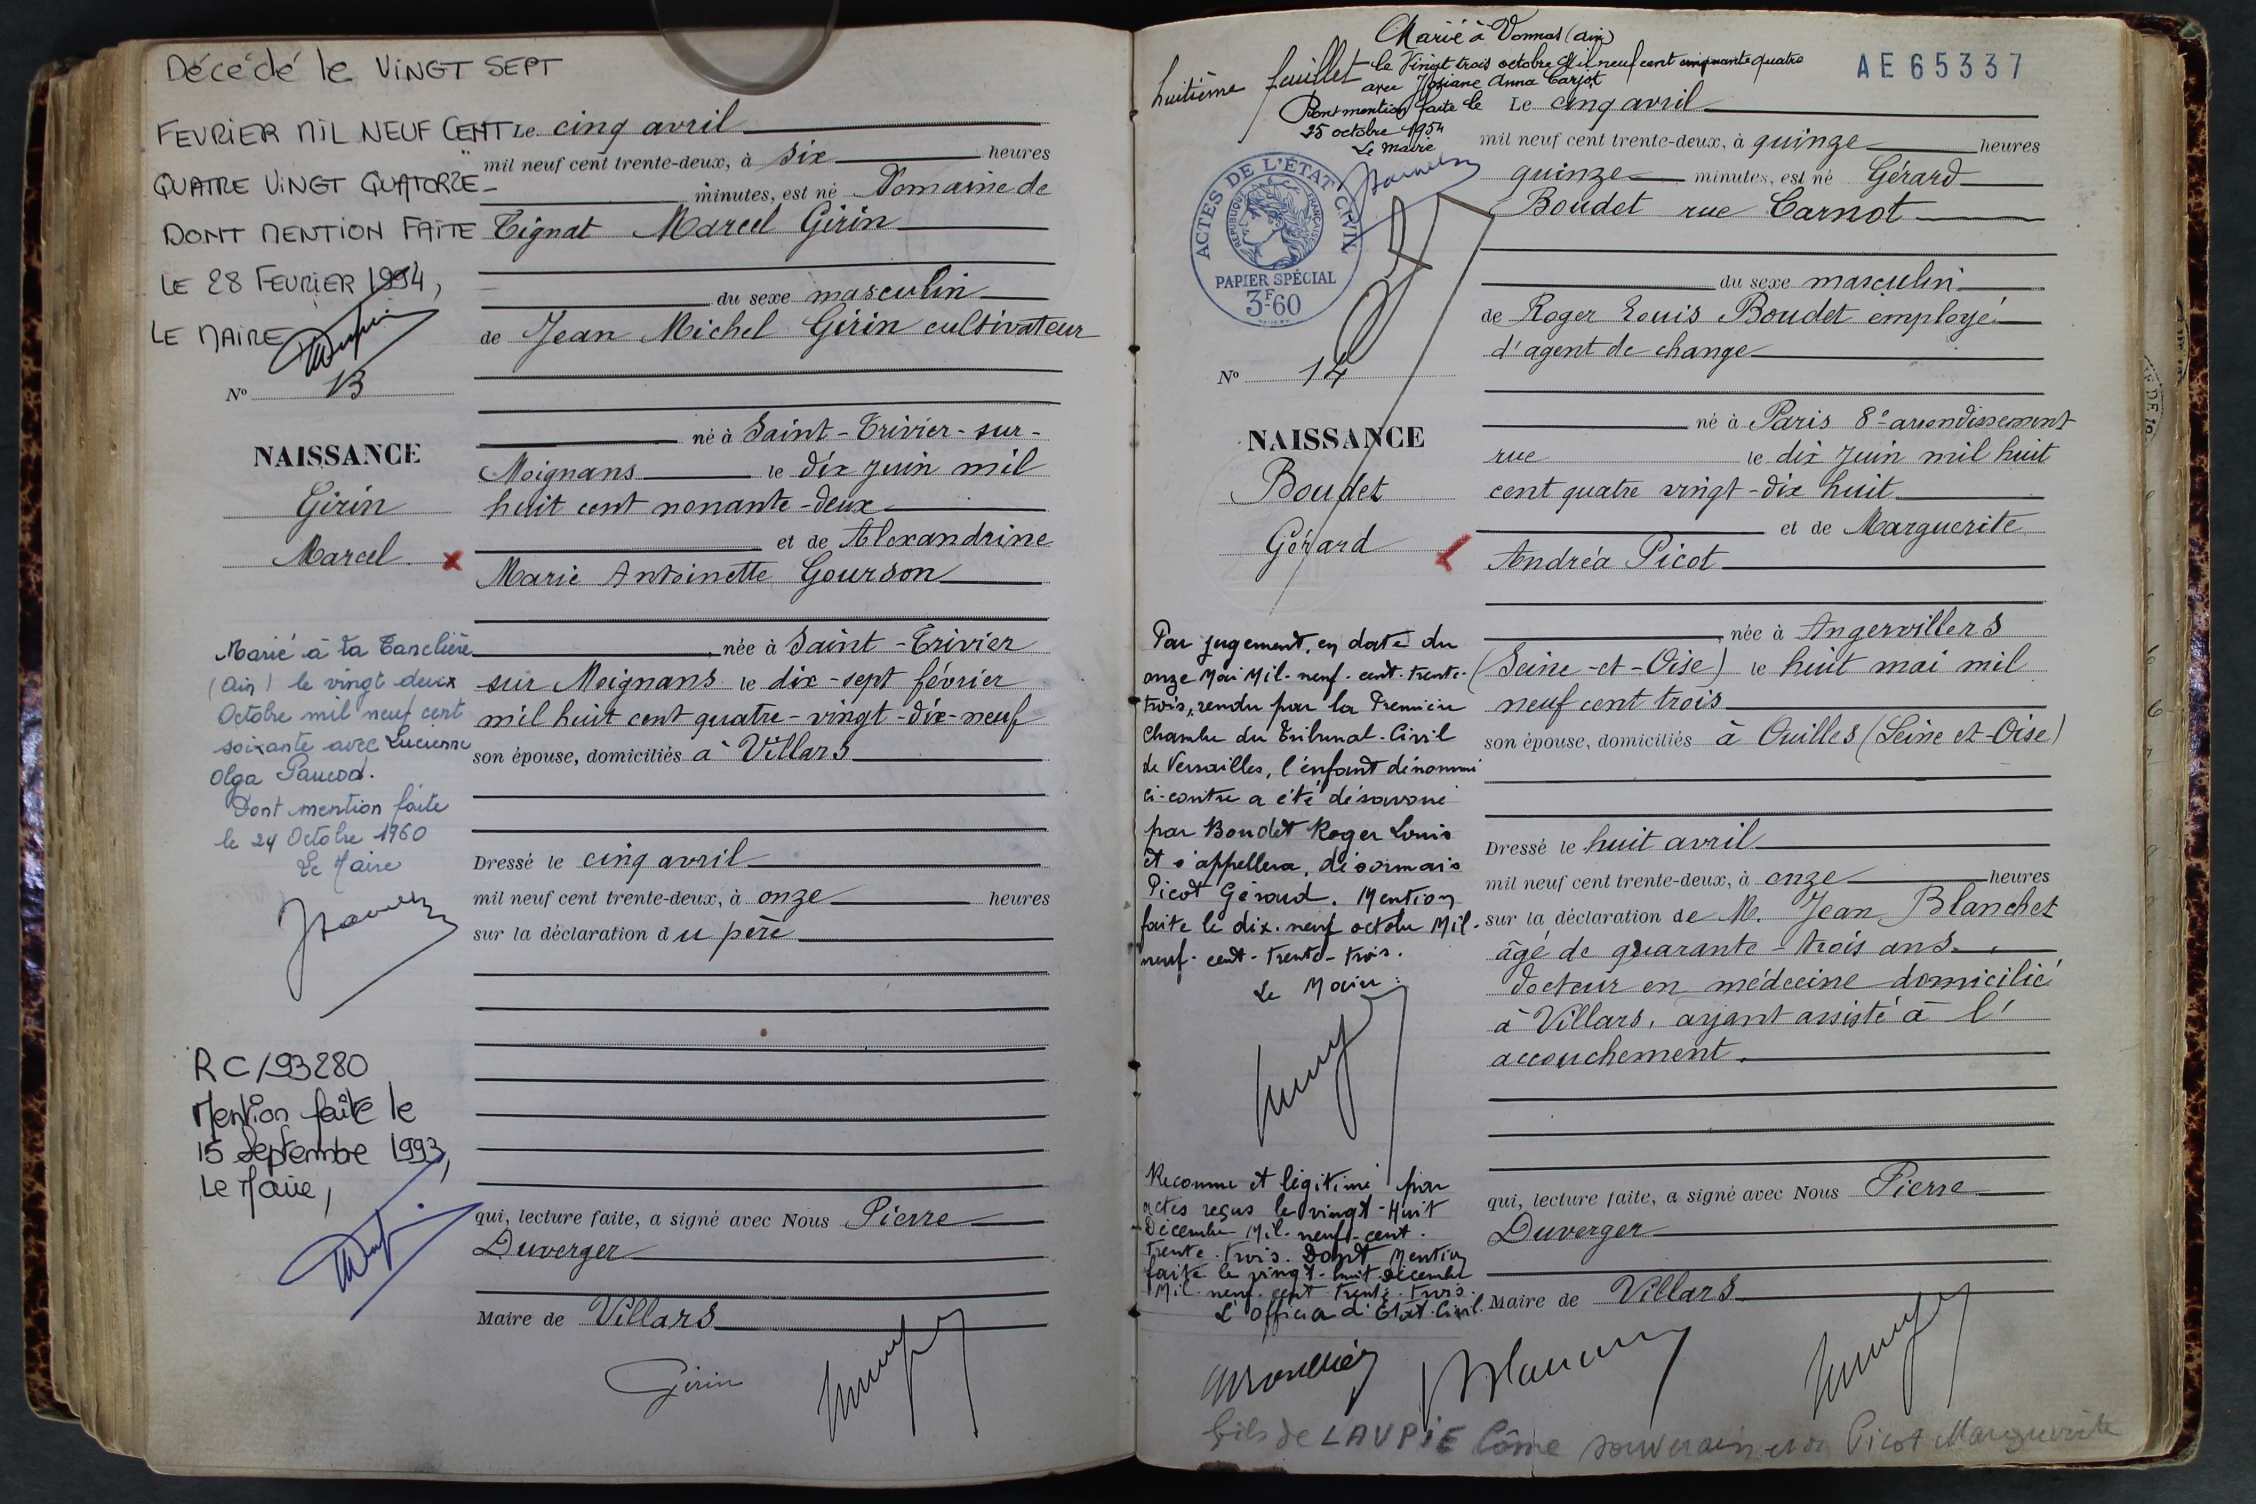 Décédé le VINGT SEPT
FEVRIER MIL NEUF CENT
QUATRE VINGT QUATORZE
DONT MENTION FAITE
LE 28 FEVRIER 1994,
LE MAIRE
No 13
NAISSANCE
Girin
Marcel
Marié à La Tranclière
(Ain) le vingt deux
Octobre mil neuf cent
soixante avec Lucienne
Olga Paucod.
Dont mention faite
le 24 Octobre 1960
Le Maire
RC/93280
Mention faite le
15 Septembre 1993,
Le Maire,
Le cinq avril
mil neuf cent trente-deux, à six heures
minutes, est né Domaine de
Tignat Marcel Girin
du sexe masculin
de Jean Michel Girin cultivateur
né à Saint-Trivier-sur-
Moignans le dix juin mil
huit cent nonante-deux
et de Alexandrine
Marie Antoinette Gourson
née à Saint-Trivier
sur Moignans le dix-sept février
mil huit cent quatre-vingt-dix-neuf
son épouse, domiciliés à Villars
Dressé le cinq avril
mil neuf cent trente-deux, à onze heures
sur la déclaration du père
qui, lecture faite, a signé avec Nous Pierre
Duverger
Maire de Villars
Girin
huitième feuillet
Marié à Vonnas (ain)
le Vingt trois octobre mil neuf cent cinquante quatre
avec Josiane Anna Carjot
Dont mention faite le
25 octobre 1954
Le Maire
AE 65337
ACTES DE L'ÉTAT CIVIL
RÉPUBLIQUE FRANÇAISE
PAPIER SPÉCIAL
3F.60
No 14
NAISSANCE
Boudet
Gérard
Par jugement, en date du
onze Mai Mil-neuf-cent-trente-
trois, rendu par la Première
Chambre du Tribunal-Civil
de Versailles, l'enfant dénommé
ci-contre a été désavoué
par Boudet Roger Louis
et s'appellera, désormais
Picot Gérard. Mention
faite le dix-neuf octobre Mil-
neuf-cent-trente-trois.
Le Maire:
Reconnu et légitimé par
actes reçus le vingt-Huit
Décembre Mil-neuf-cent-
trente-trois. Dont Mention
faite le vingt-huit décembre
Mil-neuf-cent-trente-trois.
L'Officier d'Etat-Civil
Le cinq avril
mil neuf cent trente-deux, à quinze heures
quinze minutes, est né Gérard
Boudet rue Carnot
du sexe masculin
de Roger Louis Boudet employé
d'agent de change
né à Paris 8e arrondissement
rue le dix juin mil huit
cent quatre vingt-dix huit
et de Marguerite
Andréa Picot
née à Angervillers
(Seine-et-Oise) le huit mai mil
neuf cent trois
son épouse, domiciliés à Ouilles (Seine et-Oise)
Dressé le huit avril
mil neuf cent trente-deux, à onze heures
sur la déclaration de M. Jean Blanchet
âgé de quarante-trois ans
docteur en médecine domicilié
à Villars, ayant assisté à l'
accouchement.
qui, lecture faite, a signé avec Nous Pierre
Duverger
Maire de Villars
fils de LAUPIE Côme souverain et de Picot Marguerite